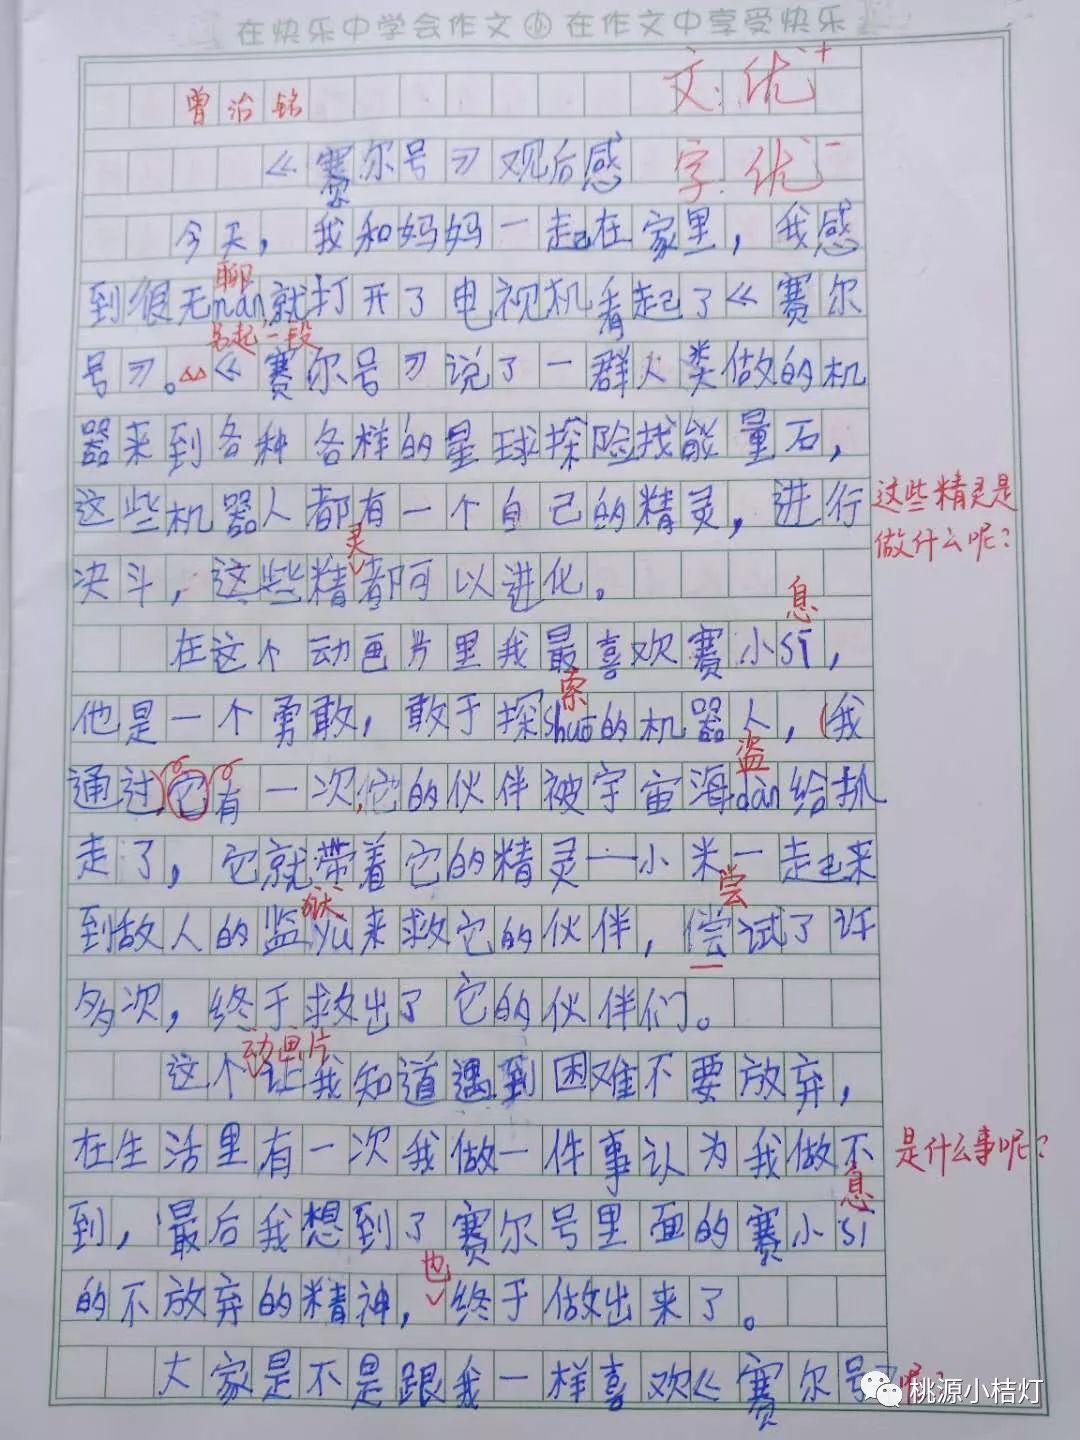 在快乐中学会作文 在作文中享受快乐
曾治铭
文:优+
《赛尔号》观后感
字:优-
今天，我和妈妈一起在家里，我感
聊
到很无nan,就打开了电视机看起了《赛尔
另起一段
号》。《赛尔号》说了一群人类做的机
器来到各种各样的星球探险找能量石，
这些机器人都有一个自己的精灵，进行
这些精灵是
做什么呢？
灵
决斗，这些精都可以进化。
息
在这个动画片里我最喜欢赛小si，
索
他是一个勇敢，敢于探shuo的机器人，(我
盗
通过它有一次,他的伙伴被宇宙海dan给抓
走了，它就带着它的精灵一小米一起来
狱 尝
到敌人的监yu来救它的伙伴，偿试了许
多次，终于救出了它的伙伴们。
动画片
这个让我知道遇到困难不要放弃，
在生活里有一次我做一件事认为我做不
是什么事呢？
息
到，最后我想到了赛尔号里面的赛小si
也
的不放弃的精神，终于做出来了。
大家是不是跟我一样喜欢《赛尔号
呢？
桃源小桔灯